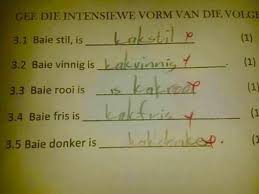 GEE DIE INTENSIEWE VORM VAN DIE VOLGE
3.1 Baie stil, is kakstil (1)
3.2 Baie vinnig is kakvinnig (1)
3.3 Baie rooi is is kakrooi (1)
3.4 Baie fris is kakfris (1)
3.5 Baie donker is kakdonker (1)